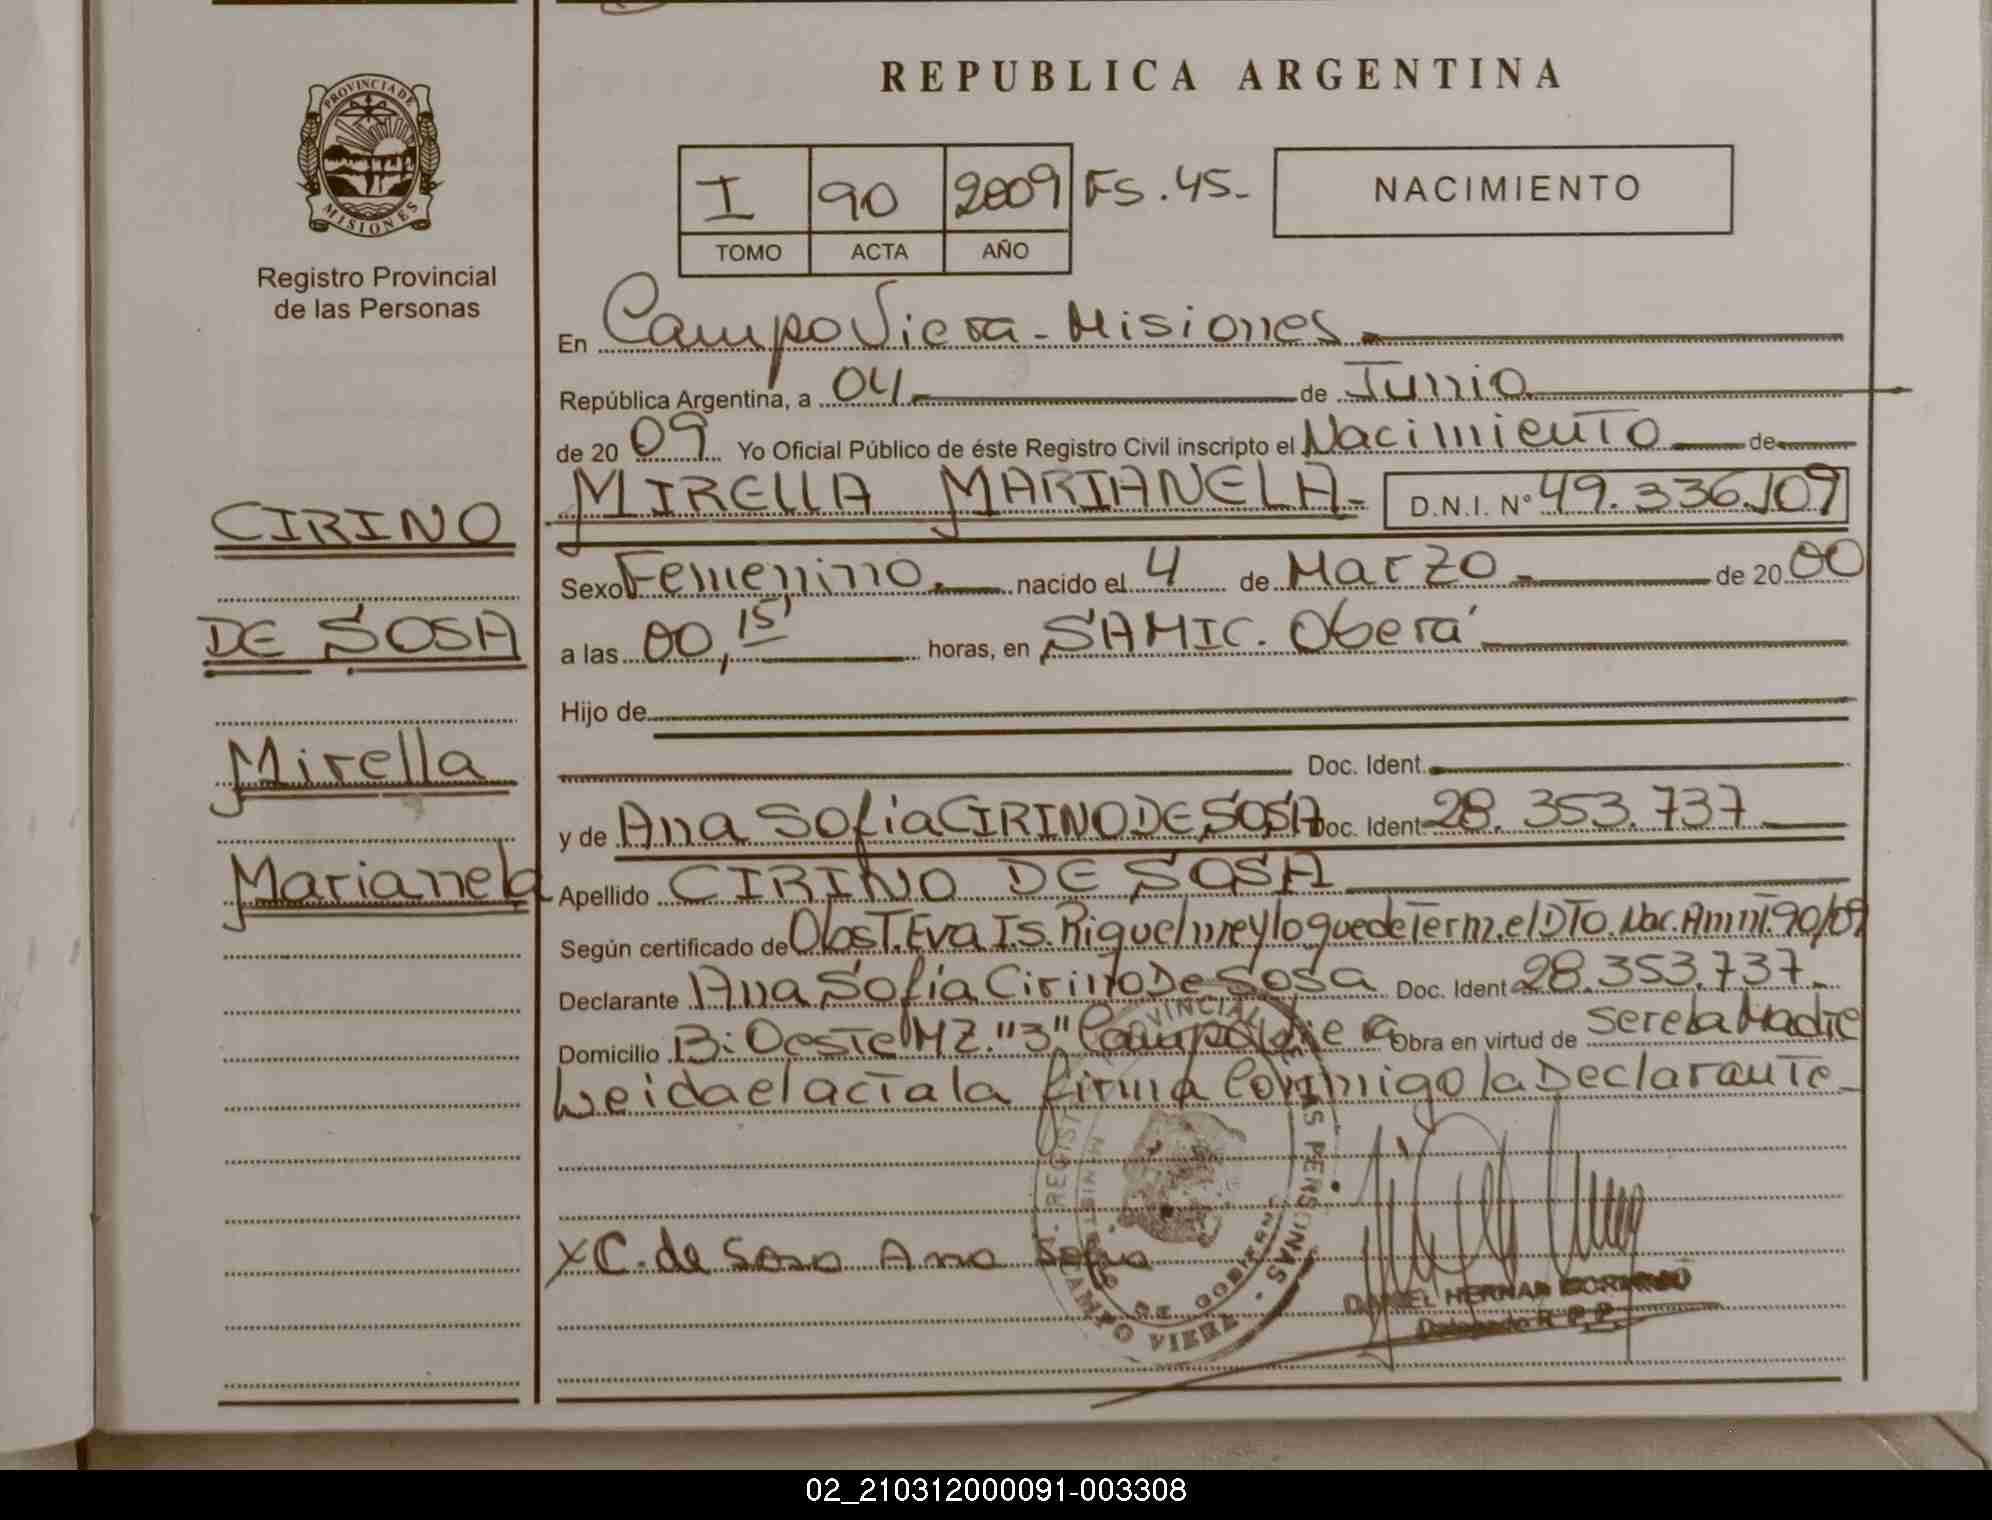 REPUBLICA ARGENTINA
PROVINCIA DE
MISIONES
Registro Provincial
de las Personas
I 90 2009 FS. 45-
TOMO ACTA AÑO
NACIMIENTO
En Campo Viera - Misiones
República Argentina, a 04 de Junio
de 20 09 Yo Oficial Público de éste Registro Civil inscripto el Nacimiento de
MIRELLA MARIANELA- D.N.I. Nº 49.336.109
Sexo Femenino nacido el 4 de Marzo de 20 00
a las 00,15' horas, en SAMIC. Oberá
Hijo de
Doc. Ident.
y de Ana Sofía CIRINO DE SOSA Doc. Ident 28.353.737
Apellido CIRINO DE SOSA
Según certificado de Obst. Eva Is. Riquelme y lo que determ. el DTO. Nac. 90/09
Declarante Ana Sofía Cirino De Sosa Doc. Ident 28.353.737
Domicilio B: Oeste MZ. "3" Campo Viera Obra en virtud de ser ela Madre
Leida el acta la firma Conmigo la Declarante
X C. de Sosa Ana Sofia
DANIEL HERNAN
Delegado R.P.P.
CIRINO
DE SOSA
Mirella
Marianela
CAMPO VIERA
02_210312000091-003308